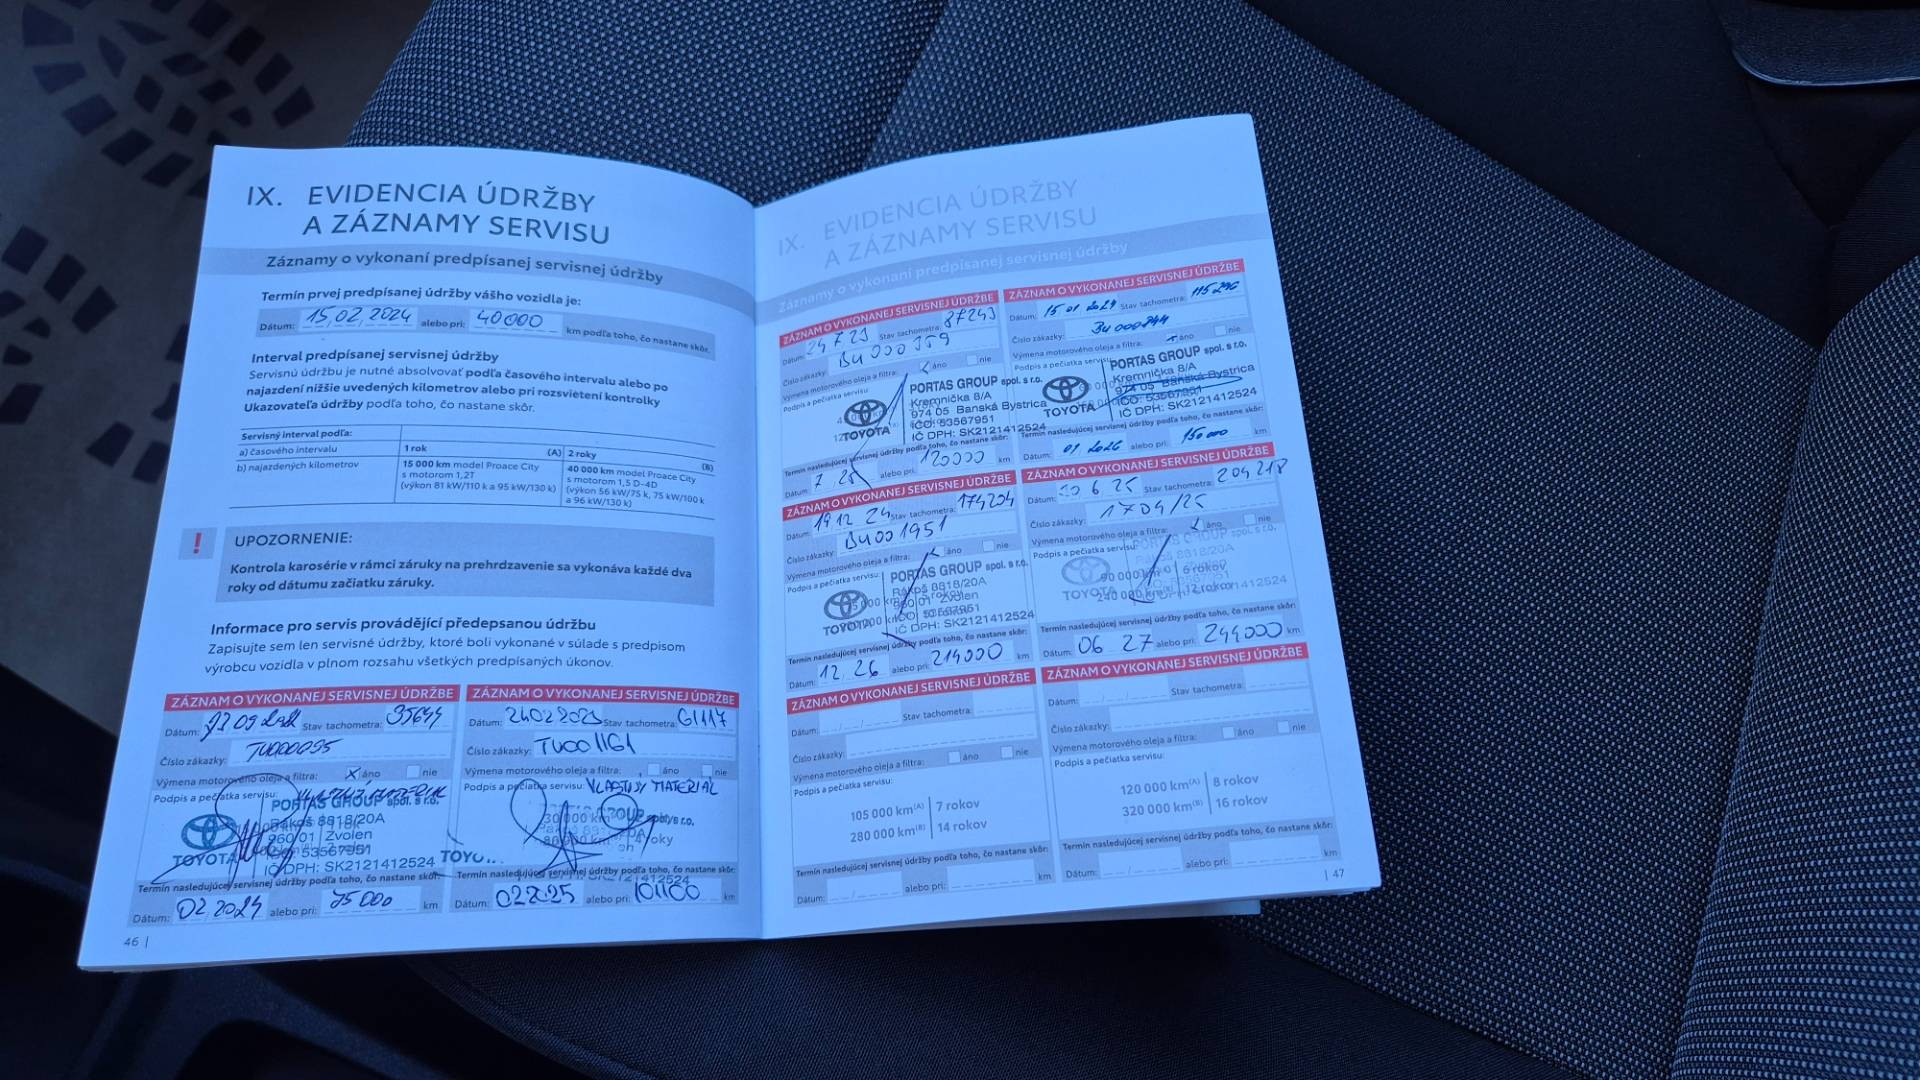 IX. EVIDENCIA ÚDRŽBY
A ZÁZNAMY SERVISU
Záznamy o vykonaní predpísanej servisnej údržby
Termín prvej predpísanej údržby vášho vozidla je:
Dátum: 15 02 2024 alebo pri: 40000 km podľa toho, čo nastane skôr.
Interval predpísanej servisnej údržby
Servisnú údržbu je nutné absolvovať podľa časového intervalu alebo po
najazdení nižšie uvedených kilometrov alebo pri rozsvietení kontrolky
Ukazovateľa údržby podľa toho, čo nastane skôr.
Servisný interval podľa:
a) časového intervalu 1 rok (A) 2 roky (B)
b) najazdených kilometrov 15 000 km model Proace City 40 000 km model Proace City
s motorom 1,2T s motorom 1,5 D-4D
(výkon 81 kW/110 k a 95 kW/130 k) (výkon 56 kW/75 k, 75 kW/100 k
a 96 kW/130 k)
! UPOZORNENIE:
Kontrola karosérie v rámci záruky na prehrdzavenie sa vykonáva každé dva
roky od dátumu začiatku záruky.
Informace pro servis provádějící předepsanou údržbu
Zapisujte sem len servisné údržby, ktoré boli vykonané v súlade s predpisom
výrobcu vozidla v plnom rozsahu všetkých predpísaných úkonov.
ZÁZNAM O VYKONANEJ SERVISNEJ ÚDRŽBE
Dátum: Stav tachometra: 35644
Číslo zákazky: TU000095
Výmena motorového oleja a filtra: x áno nie
Podpis a pečiatka servisu:
PORTAS GROUP spol. s r.o.
Rákoš 8818/20A
960 01 Zvolen
IČO: 53567951
TOYOTA IČ DPH: SK2121412524
Termín nasledujúcej servisnej údržby podľa toho, čo nastane skôr:
Dátum: 02 2024 alebo pri: 75 000 km
ZÁZNAM O VYKONANEJ SERVISNEJ ÚDRŽBE
Dátum: Stav tachometra: 61117
Číslo zákazky: TU001161
Výmena motorového oleja a filtra: áno nie
Podpis a pečiatka servisu: VLASTNÝ MATERIAL
Termín nasledujúcej servisnej údržby podľa toho, čo nastane skôr:
Dátum: 02 2025 alebo pri: 101100 km
46 |
IX. EVIDENCIA ÚDRŽBY
A ZÁZNAMY SERVISU
Záznamy o vykonaní predpísanej servisnej údržby
ZÁZNAM O VYKONANEJ SERVISNEJ ÚDRŽBE
Dátum: 24 7 23 Stav tachometra: 87243
Číslo zákazky: BU000359
Výmena motorového oleja a filtra: áno nie
Podpis a pečiatka servisu:
PORTAS GROUP spol. s r.o.
Kremnička 8/A
974 05 Banská Bystrica
IČO: 53567951
TOYOTA IČ DPH: SK2121412524
Termín nasledujúcej servisnej údržby podľa toho, čo nastane skôr:
Dátum: 7 25 alebo pri: 120000 km
ZÁZNAM O VYKONANEJ SERVISNEJ ÚDRŽBE
Dátum: 15 01 2024 Stav tachometra: 115296
Číslo zákazky:
Výmena motorového oleja a filtra: áno nie
Podpis a pečiatka servisu:
PORTAS GROUP spol. s r.o.
Kremnička 8/A
974 05 Banská Bystrica
IČO: 53567951
TOYOTA IČ DPH: SK2121412524
Termín nasledujúcej servisnej údržby podľa toho, čo nastane skôr:
Dátum: 01 2026 alebo pri: 150000 km
ZÁZNAM O VYKONANEJ SERVISNEJ ÚDRŽBE
Dátum: 19 12 24 Stav tachometra: 174204
Číslo zákazky: BU001951
Výmena motorového oleja a filtra: áno nie
Podpis a pečiatka servisu:
PORTAS GROUP spol. s r.o.
Rákoš 8818/20A
960 01 Zvolen
IČO: 53567951
TOYOTA IČ DPH: SK2121412524
Termín nasledujúcej servisnej údržby podľa toho, čo nastane skôr:
Dátum: 12 26 alebo pri: 214000 km
ZÁZNAM O VYKONANEJ SERVISNEJ ÚDRŽBE
Dátum: 6 25 Stav tachometra: 204218
Číslo zákazky: 1704/25
Výmena motorového oleja a filtra: áno nie
Podpis a pečiatka servisu:
PORTAS GROUP spol. s r.o.
90 000 km 6 rokov
TOYOTA 240 000 km 12 rokov
Termín nasledujúcej servisnej údržby podľa toho, čo nastane skôr:
Dátum: 06 27 alebo pri: 244000 km
ZÁZNAM O VYKONANEJ SERVISNEJ ÚDRŽBE
Dátum: Stav tachometra:
Číslo zákazky:
Výmena motorového oleja a filtra: áno nie
Podpis a pečiatka servisu:
105 000 km(A) | 7 rokov
280 000 km(B) | 14 rokov
Termín nasledujúcej servisnej údržby podľa toho, čo nastane skôr:
Dátum: alebo pri: km
ZÁZNAM O VYKONANEJ SERVISNEJ ÚDRŽBE
Dátum: Stav tachometra:
Číslo zákazky:
Výmena motorového oleja a filtra: áno nie
Podpis a pečiatka servisu:
120 000 km(A) | 8 rokov
320 000 km(B) | 16 rokov
Termín nasledujúcej servisnej údržby podľa toho, čo nastane skôr:
Dátum: alebo pri: km
| 47